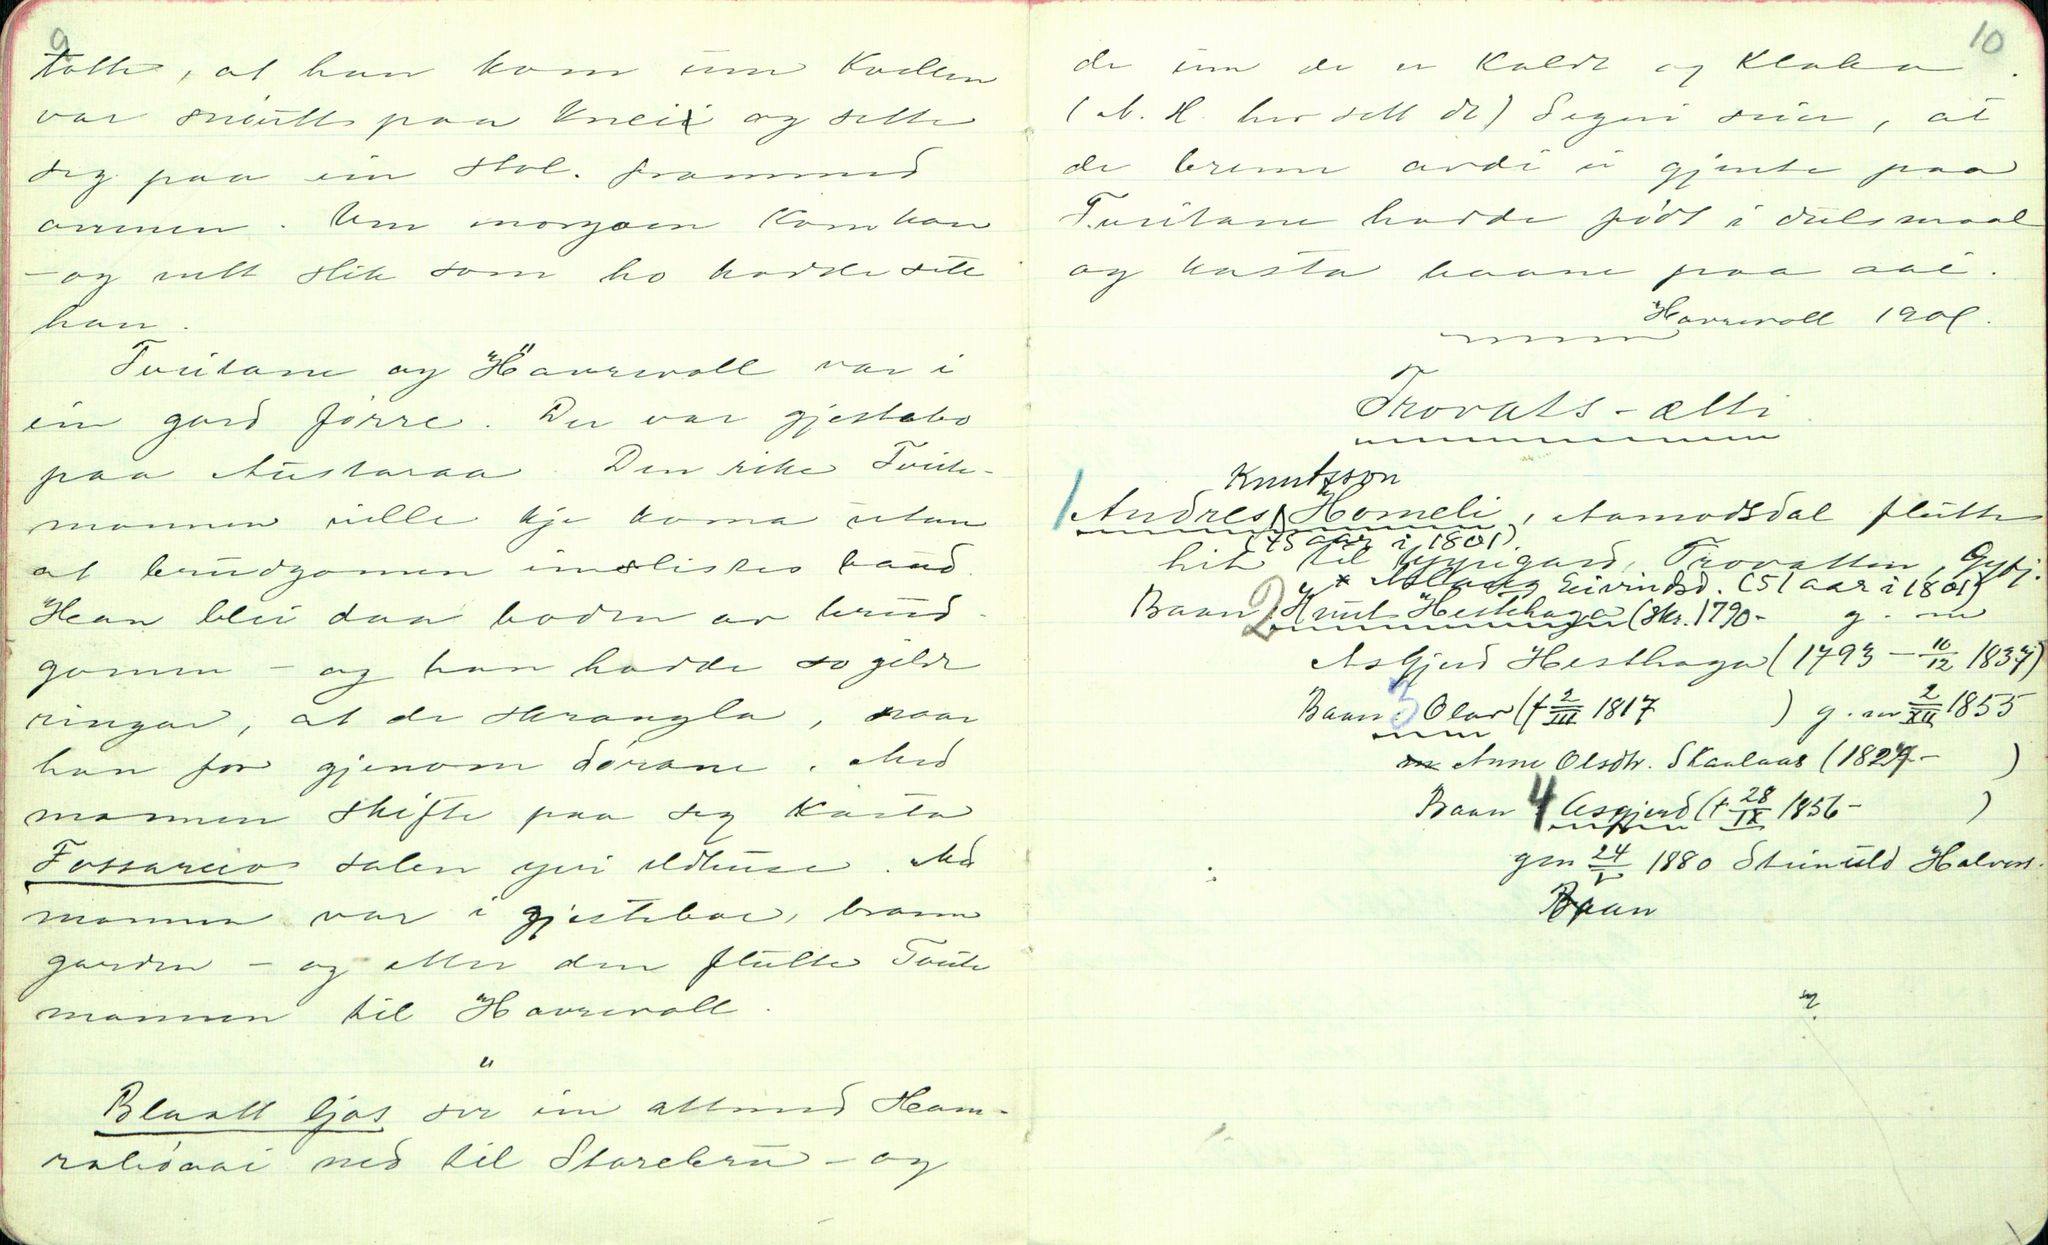 9
totte, at han kom inn Kadlen
var snøutt paa Kneii og sette
seg paa ein stol. frammed
omnen. Um morgoen Kom han
– og nett slik som ho hadde sett
han.
Tveitane og Haavrevoll var i
ein gard førre. Der var gjestebo
paa Austaraa. Den rike Tveite-
mannen ville kje koma utan
at brudgomen
Han blei daa boden av brud-
gomen – og han hadde so gilde
ringar, at de skrangla, naar
han for gjenom dørane. Med
mannen skifte paa seg Kasta
Fossareio salen yvi eldhuse. Med
mannen var i gjesteboe, brann
garden – og etter den flutte Tveite
mannen til Havrevoll.
"
Blaatt ljos ser ein attmed Ham-
ned til Storebru – og
10
de inn de er Kaldt og Klaka.
(A. H. her sett de) Segni seier, at
de brenn avdi ei gjente paa
Tveitane hadde født i dulsmaal
og kasta baane paa aai.
Havrevoll 1901.
Trovats-ætti
Knutsson
1 Andres Homeli, Aamodsdal flutte
(45 aar i 1801)
hit til Uppigard, Trovatten, Gytj.
g * Aslaug Eivindsd. (51 aar i 1801)
Baan: 2 Knut Hesthaga (skr. 1790- g. m
Asgjerd Hesthaga (1793 – 10/12 1837)
Baan: 3 Olav (f 2/III 1817 ) g. m 2/XII 1855
m Anne Olsdtr. Skaalaas (1827- )
Baan 4 Asgjerd (f 28/IX 1856- )
gm 24/V 1880 Steinuld Halvors.
Baan